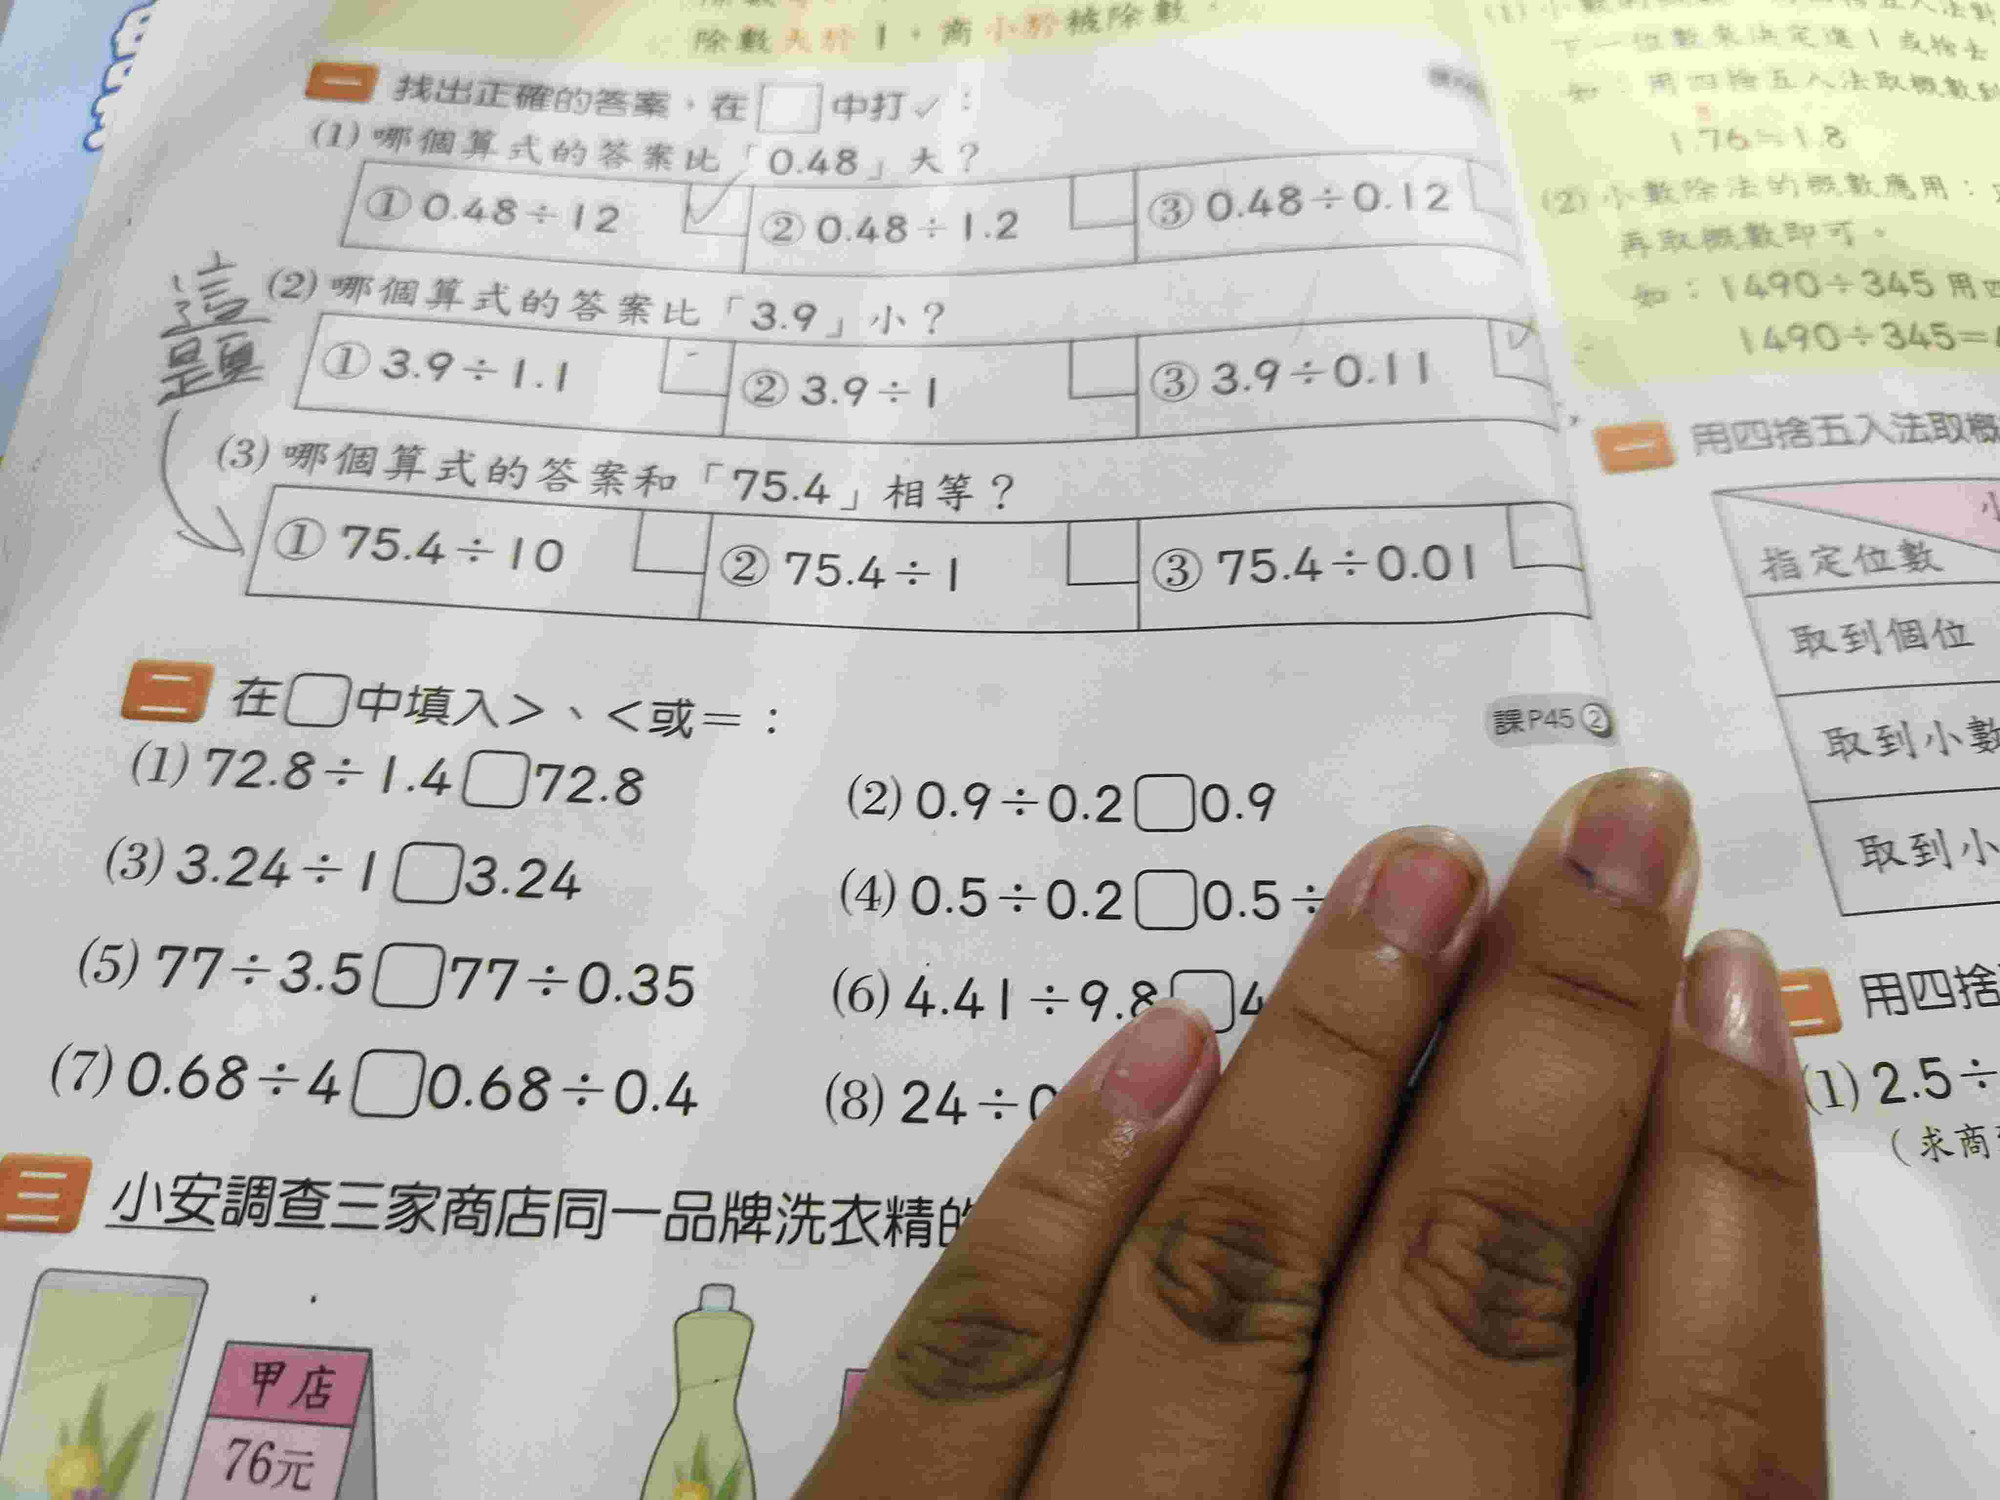 除數大於1，商小於被除數。
一 找出正確的答案，在□中打✓：
(1)哪個算式的答案比「0.48」大？
①0.48÷12 ✓ ②0.48÷1.2 ③0.48÷0.12
(2)哪個算式的答案比「3.9」小？
①3.9÷1.1 ②3.9÷1 ③3.9÷0.11 ✓
這題
(3)哪個算式的答案和「75.4」相等？
①75.4÷10 ②75.4÷1 ③75.4÷0.01
二 在□中填入>、<或=：
課P45②
(1)72.8÷1.4□72.8
(2)0.9÷0.2□0.9
(3)3.24÷1□3.24
(4)0.5÷0.2□0.5÷
(5)77÷3.5□77÷0.35
(6)4.41÷9.8□4
(7)0.68÷4□0.68÷0.4
(8)24÷0
三 小安調查三家商店同一品牌洗衣精的
甲店
76元
下一位數來決定進1或捨去
如：用四捨五入法取概數到
1.76≒1.8
(2)小數除法的概數應用：
再取概數即可。
如：1490÷345用四
1490÷345=
一 用四捨五入法取概
小
指定位數
取到個位
取到小數
取到小
二 用四捨
(1)2.5÷
(求商